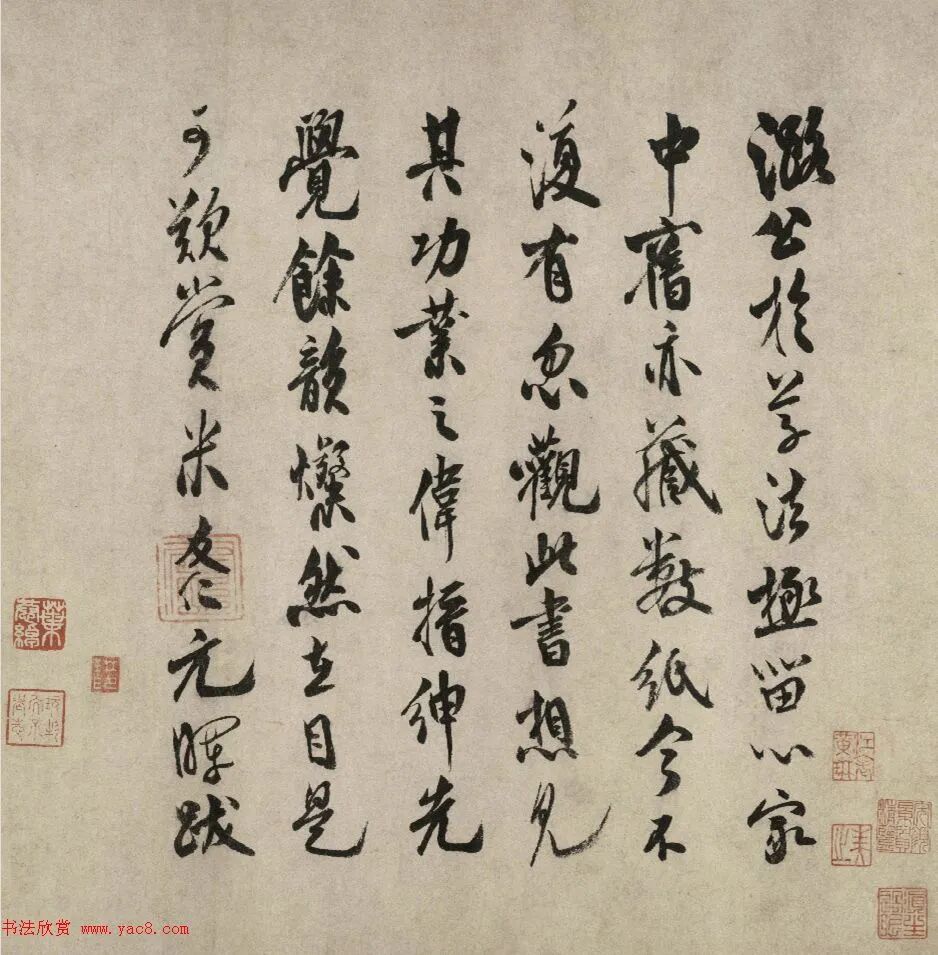 潞公於字法極留心家
中舊亦藏數紙今不
復有忽觀此書想見
其功業之偉搢紳先
覺餘韻燦然在目是
可歎賞米友仁元暉跋
书法欣赏 www.yac8.com